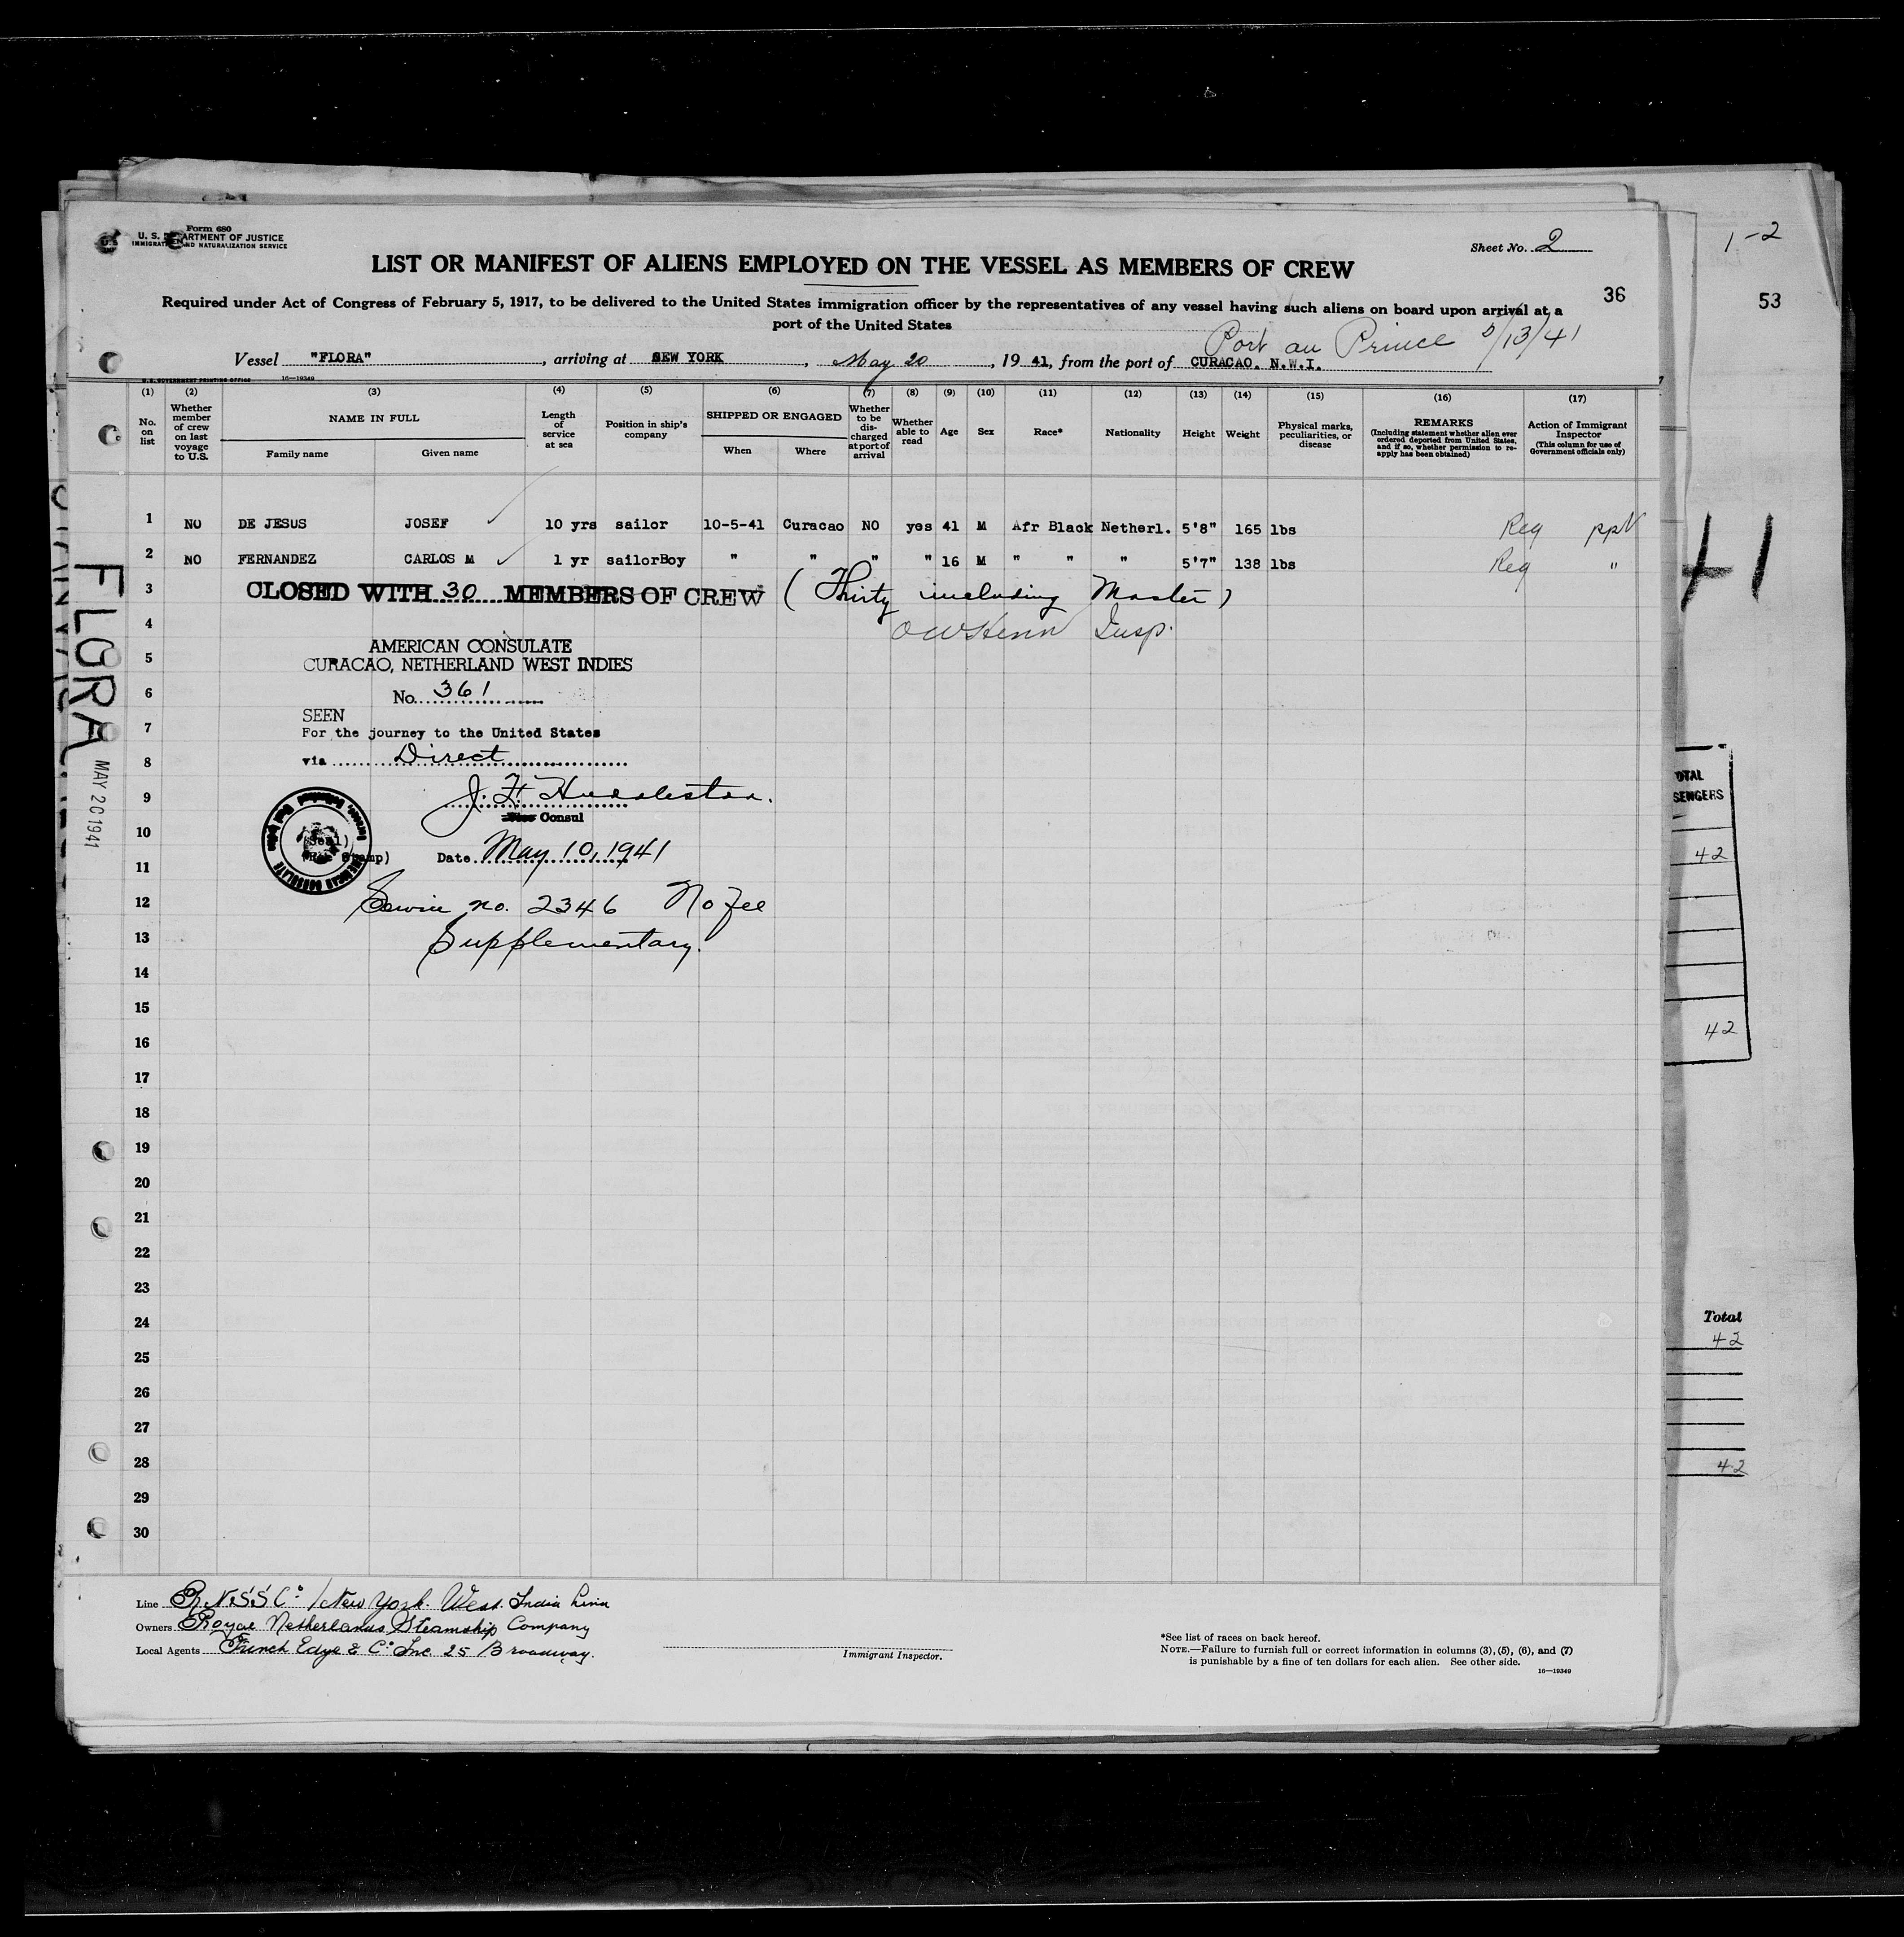 Form 680
U. S. DEPARTMENT OF JUSTICE
IMMIGRATION AND NATURALIZATION SERVICE
Sheet No. 2
1-2
LIST OR MANIFEST OF ALIENS EMPLOYED ON THE VESSEL AS MEMBERS OF CREW
36
53
Required under Act of Congress of February 5, 1917, to be delivered to the United States immigration officer by the representatives of any vessel having such aliens on board upon arrival at a
port of the United States
Port au Prince 5/13/41
Vessel "FLORA", arriving at NEW YORK, May 20, 19 41, from the port of CURACAO. N.W.I.
U. S. GOVERNMENT PRINTING OFFICE 16—19349
(1) (2) (3) (4) (5) (6) (7) (8) (9) (10) (11) (12) (13) (14) (15) (16) (17)
No. on list
Whether member of crew on last voyage to U.S.
NAME IN FULL
Family name
Given name
Length of service at sea
Position in ship's company
SHIPPED OR ENGAGED
When
Where
Whether to be discharged at port of arrival
Whether able to read
Age
Sex
Race*
Nationality
Height
Weight
Physical marks, peculiarities, or disease
REMARKS
(Including statement whether alien ever ordered deported from United States, and if so, whether permission to reapply has been obtained)
Action of Immigrant Inspector
(This column for use of Government officials only)
1 NO DE JESUS JOSEF 10 yrs sailor 10-5-41 Curacao NO yes 41 M Afr Black Netherl. 5'8" 165 lbs Reg ppV
2 NO FERNANDEZ CARLOS M 1 yr sailorBoy " " " " 16 M " " " 5'7" 138 lbs Reg "
3 CLOSED WITH 30 MEMBERS OF CREW (Thirty including Master)
4 Insp.
AMERICAN CONSULATE
5 CURACAO, NETHERLAND WEST INDIES
6 No. 361
SEEN
7 For the journey to the United States
8 via Direct
9
Vice Consul
10 (Seal)
Date May 10, 1941
11
12 Service no. 2346 No Fee
13 Supplementary.
14
15
16
17
18
19
20
21
22
23
24
25
26
27
28
29
30
FLORA
MAY 20 1941
41
TOTAL
SENGERS
42
42
Total
42
42
Line R.N.S.S.Co. / New York. West India Line
Owners Royal Netherlands Steamship Company
Local Agents Funch Edye & Co. Inc 25 Broadway.
Immigrant Inspector.
*See list of races on back hereof.
NOTE.—Failure to furnish full or correct information in columns (3), (5), (6), and (7)
is punishable by a fine of ten dollars for each alien. See other side.
16—19349